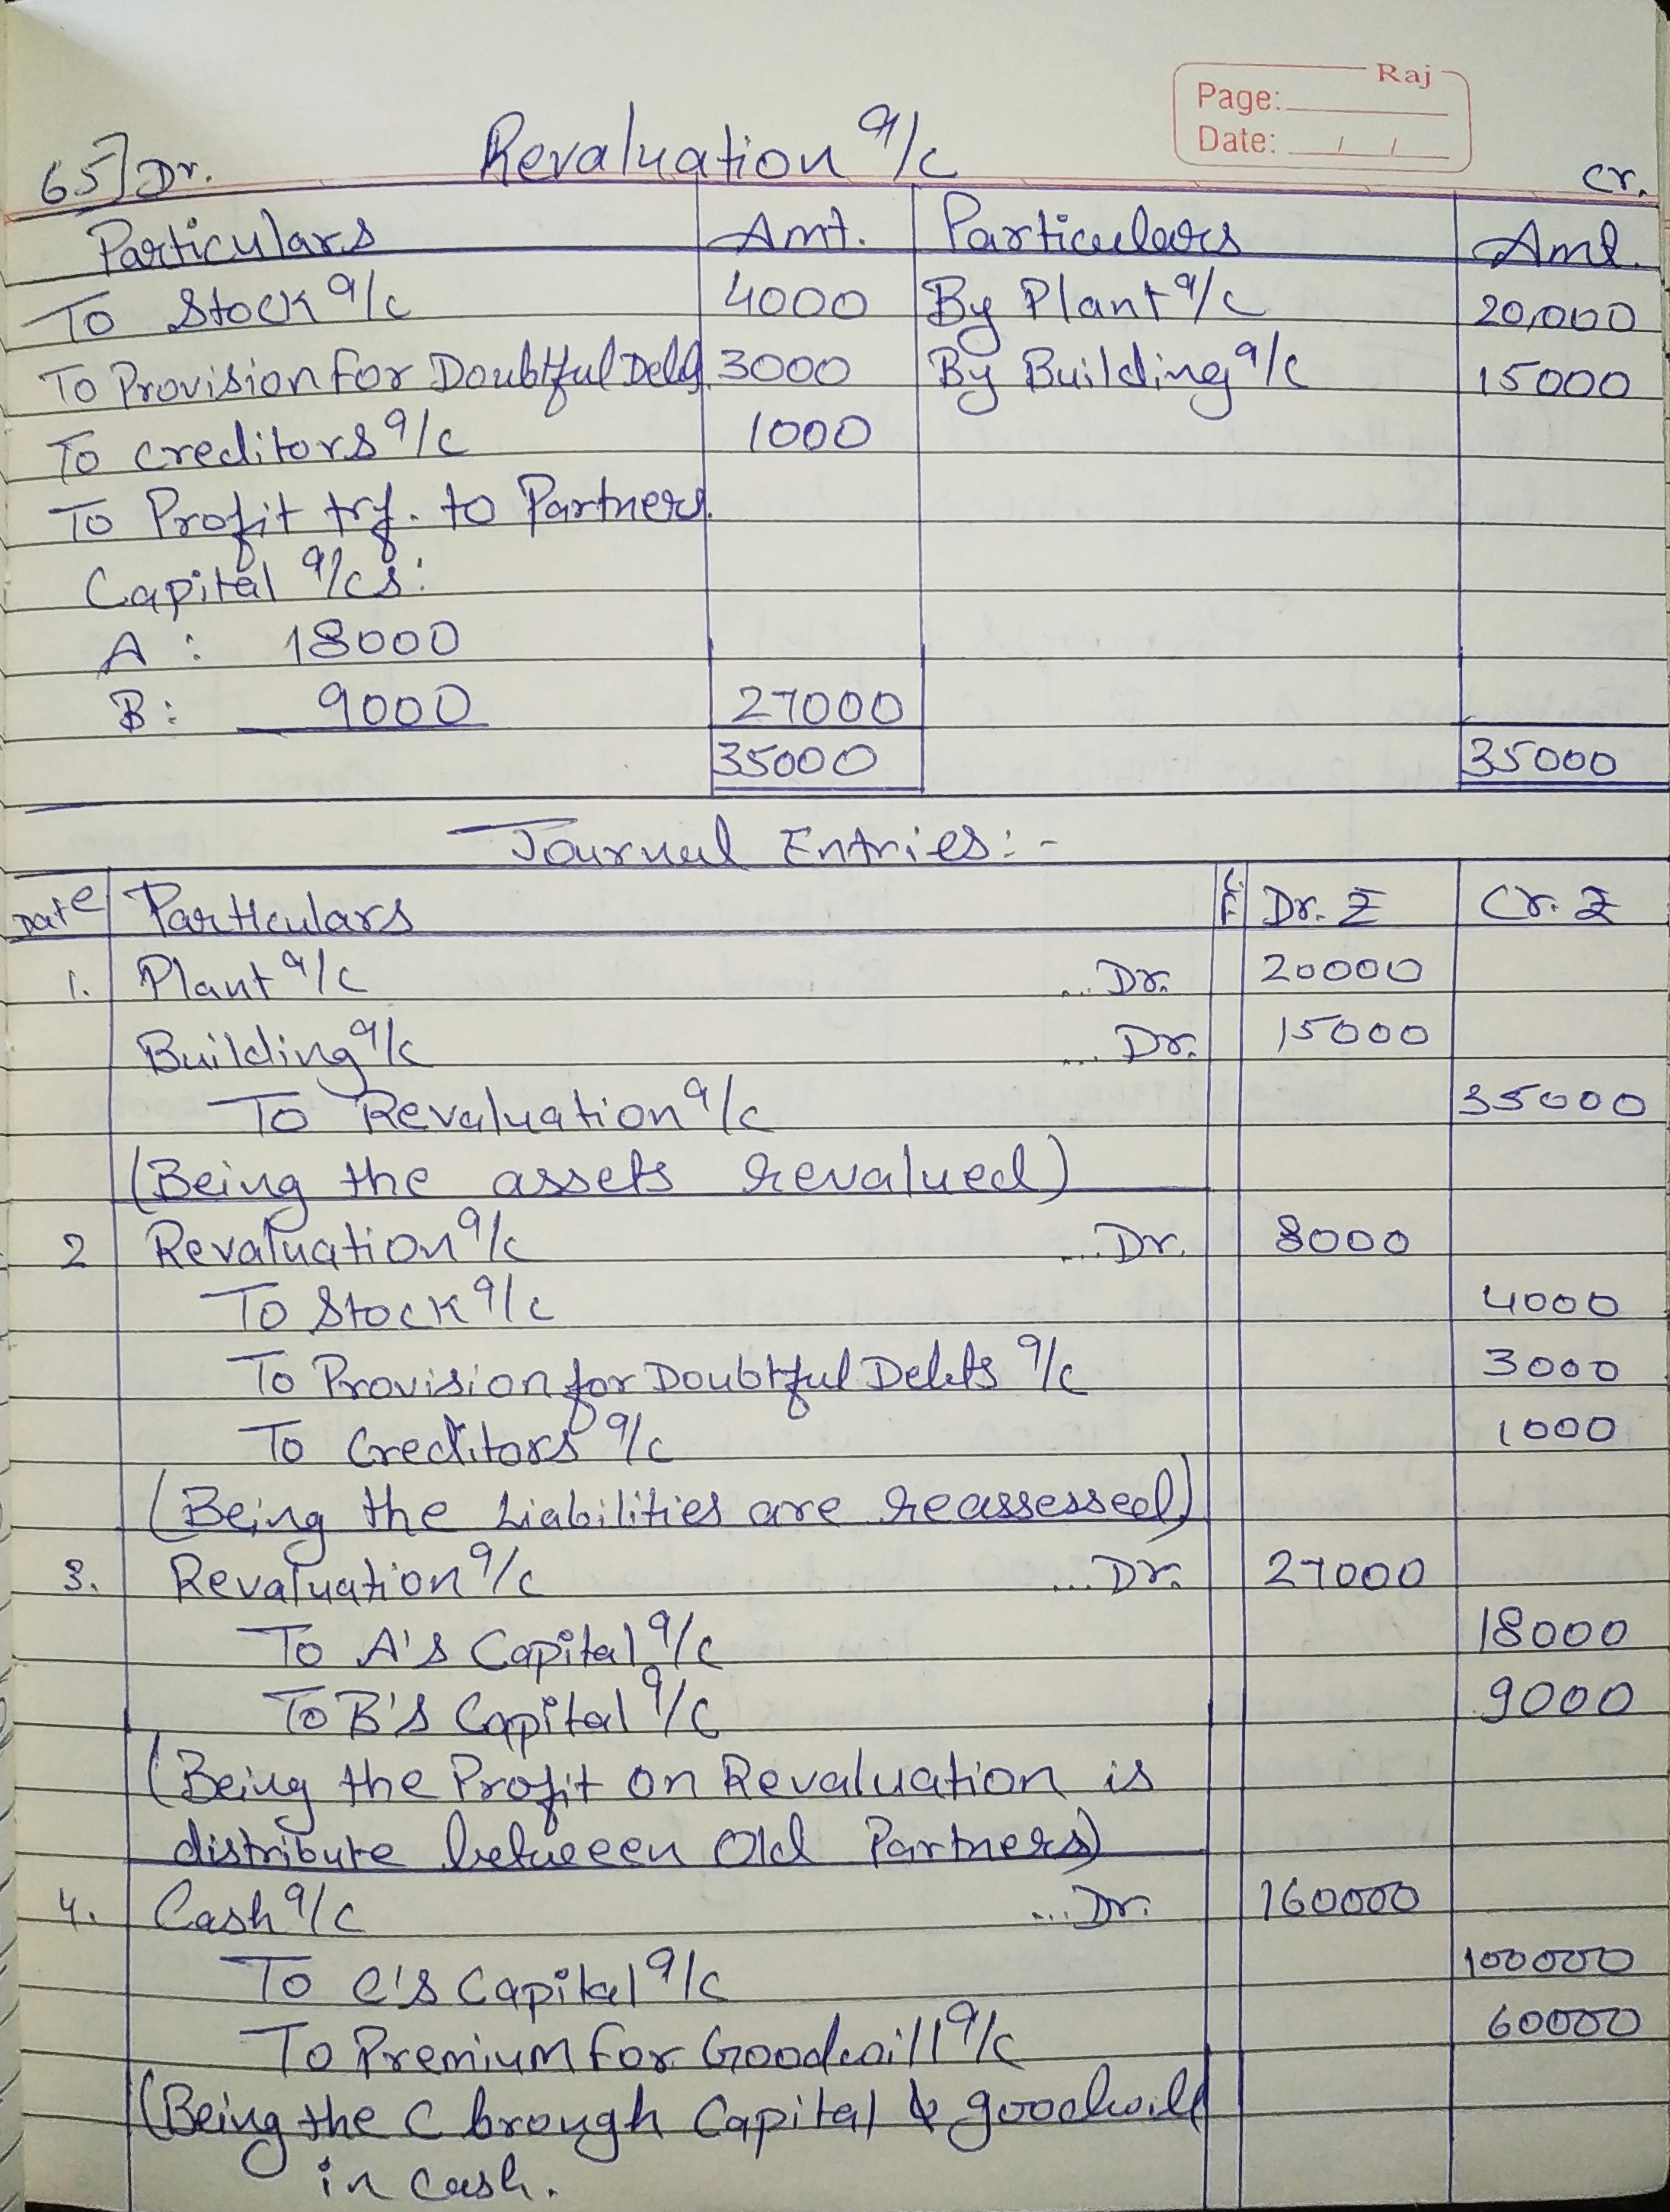 Raj
Page:
Date: / /
65] Dr. Revaluation a/c Cr.
Particulars Amt. Particulars Amt.
To Stock a/c 4000 By Plant a/c 20,000
To Provision for Doubtful Debts 3000 By Building a/c 15000
To Creditors a/c 1000
To Profit trf. to Partners
Capital a/cs:
A : 18000
B : 9000 27000
35000 35000
Journal Entries :-
Date Particulars L.F. Dr. ₹ Cr. ₹
1. Plant a/c ... Dr. 20000
Building a/c ... Dr. 15000
To Revaluation a/c 35000
(Being the assets revalued)
2 Revaluation a/c ... Dr. 8000
To Stock a/c 4000
To Provision for Doubtful Debts a/c 3000
To Creditors a/c 1000
(Being the Liabilities are reassessed)
3. Revaluation a/c ... Dr. 27000
To A's Capital a/c 18000
To B's Capital a/c 9000
(Being the Profit on Revaluation is
distribute between Old Partners)
4. Cash a/c ... Dr. 160000
To C's Capital a/c 100000
To Premium for Goodwill a/c 60000
(Being the C brough Capital & goodwill
in cash.